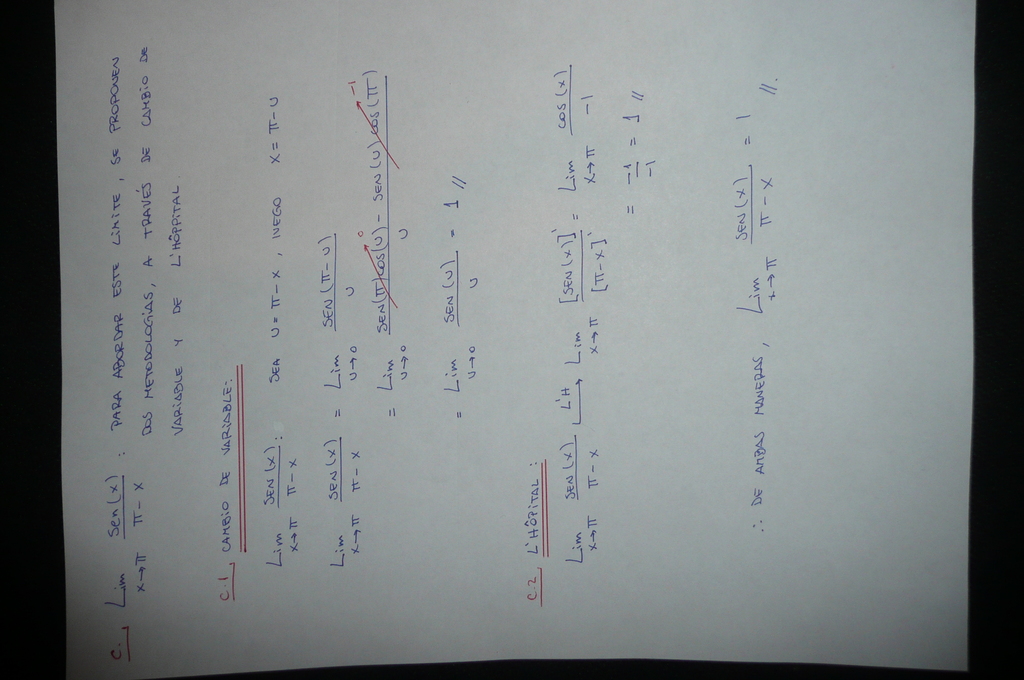 C. Lim sen(x) / π - x : PARA ABORDAR ESTE LÍMITE, SE PROPONEN
x→π DOS METODOLOGÍAS, A TRAVÉS DE CAMBIO DE
VARIABLE Y DE L'HÔPITAL.
C.1 CAMBIO DE VARIABLE:
Lim x→π SEN(x) / π - x : SEA U = π - x, LUEGO x = π - U
Lim x→π SEN(x) / π - x = Lim U→0 SEN(π - U) / U
= Lim U→0 SEN(π)COS(U) - SEN(U)COS(π) / U 0 -1
= Lim U→0 SEN(U) / U = 1 //
C.2 L'HÔPITAL:
Lim x→π SEN(x) / π - x L'H→ Lim x→π [SEN(x)]' / [π - x]' = Lim x→π COS(x) / -1
= -1 / -1 = 1 //
∴ DE AMBAS MANERAS, Lim x→π SEN(x) / π - x = 1 //.